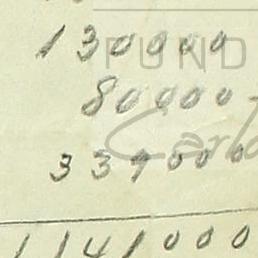 130000
FUND
80000
Carlo
339000
1141000